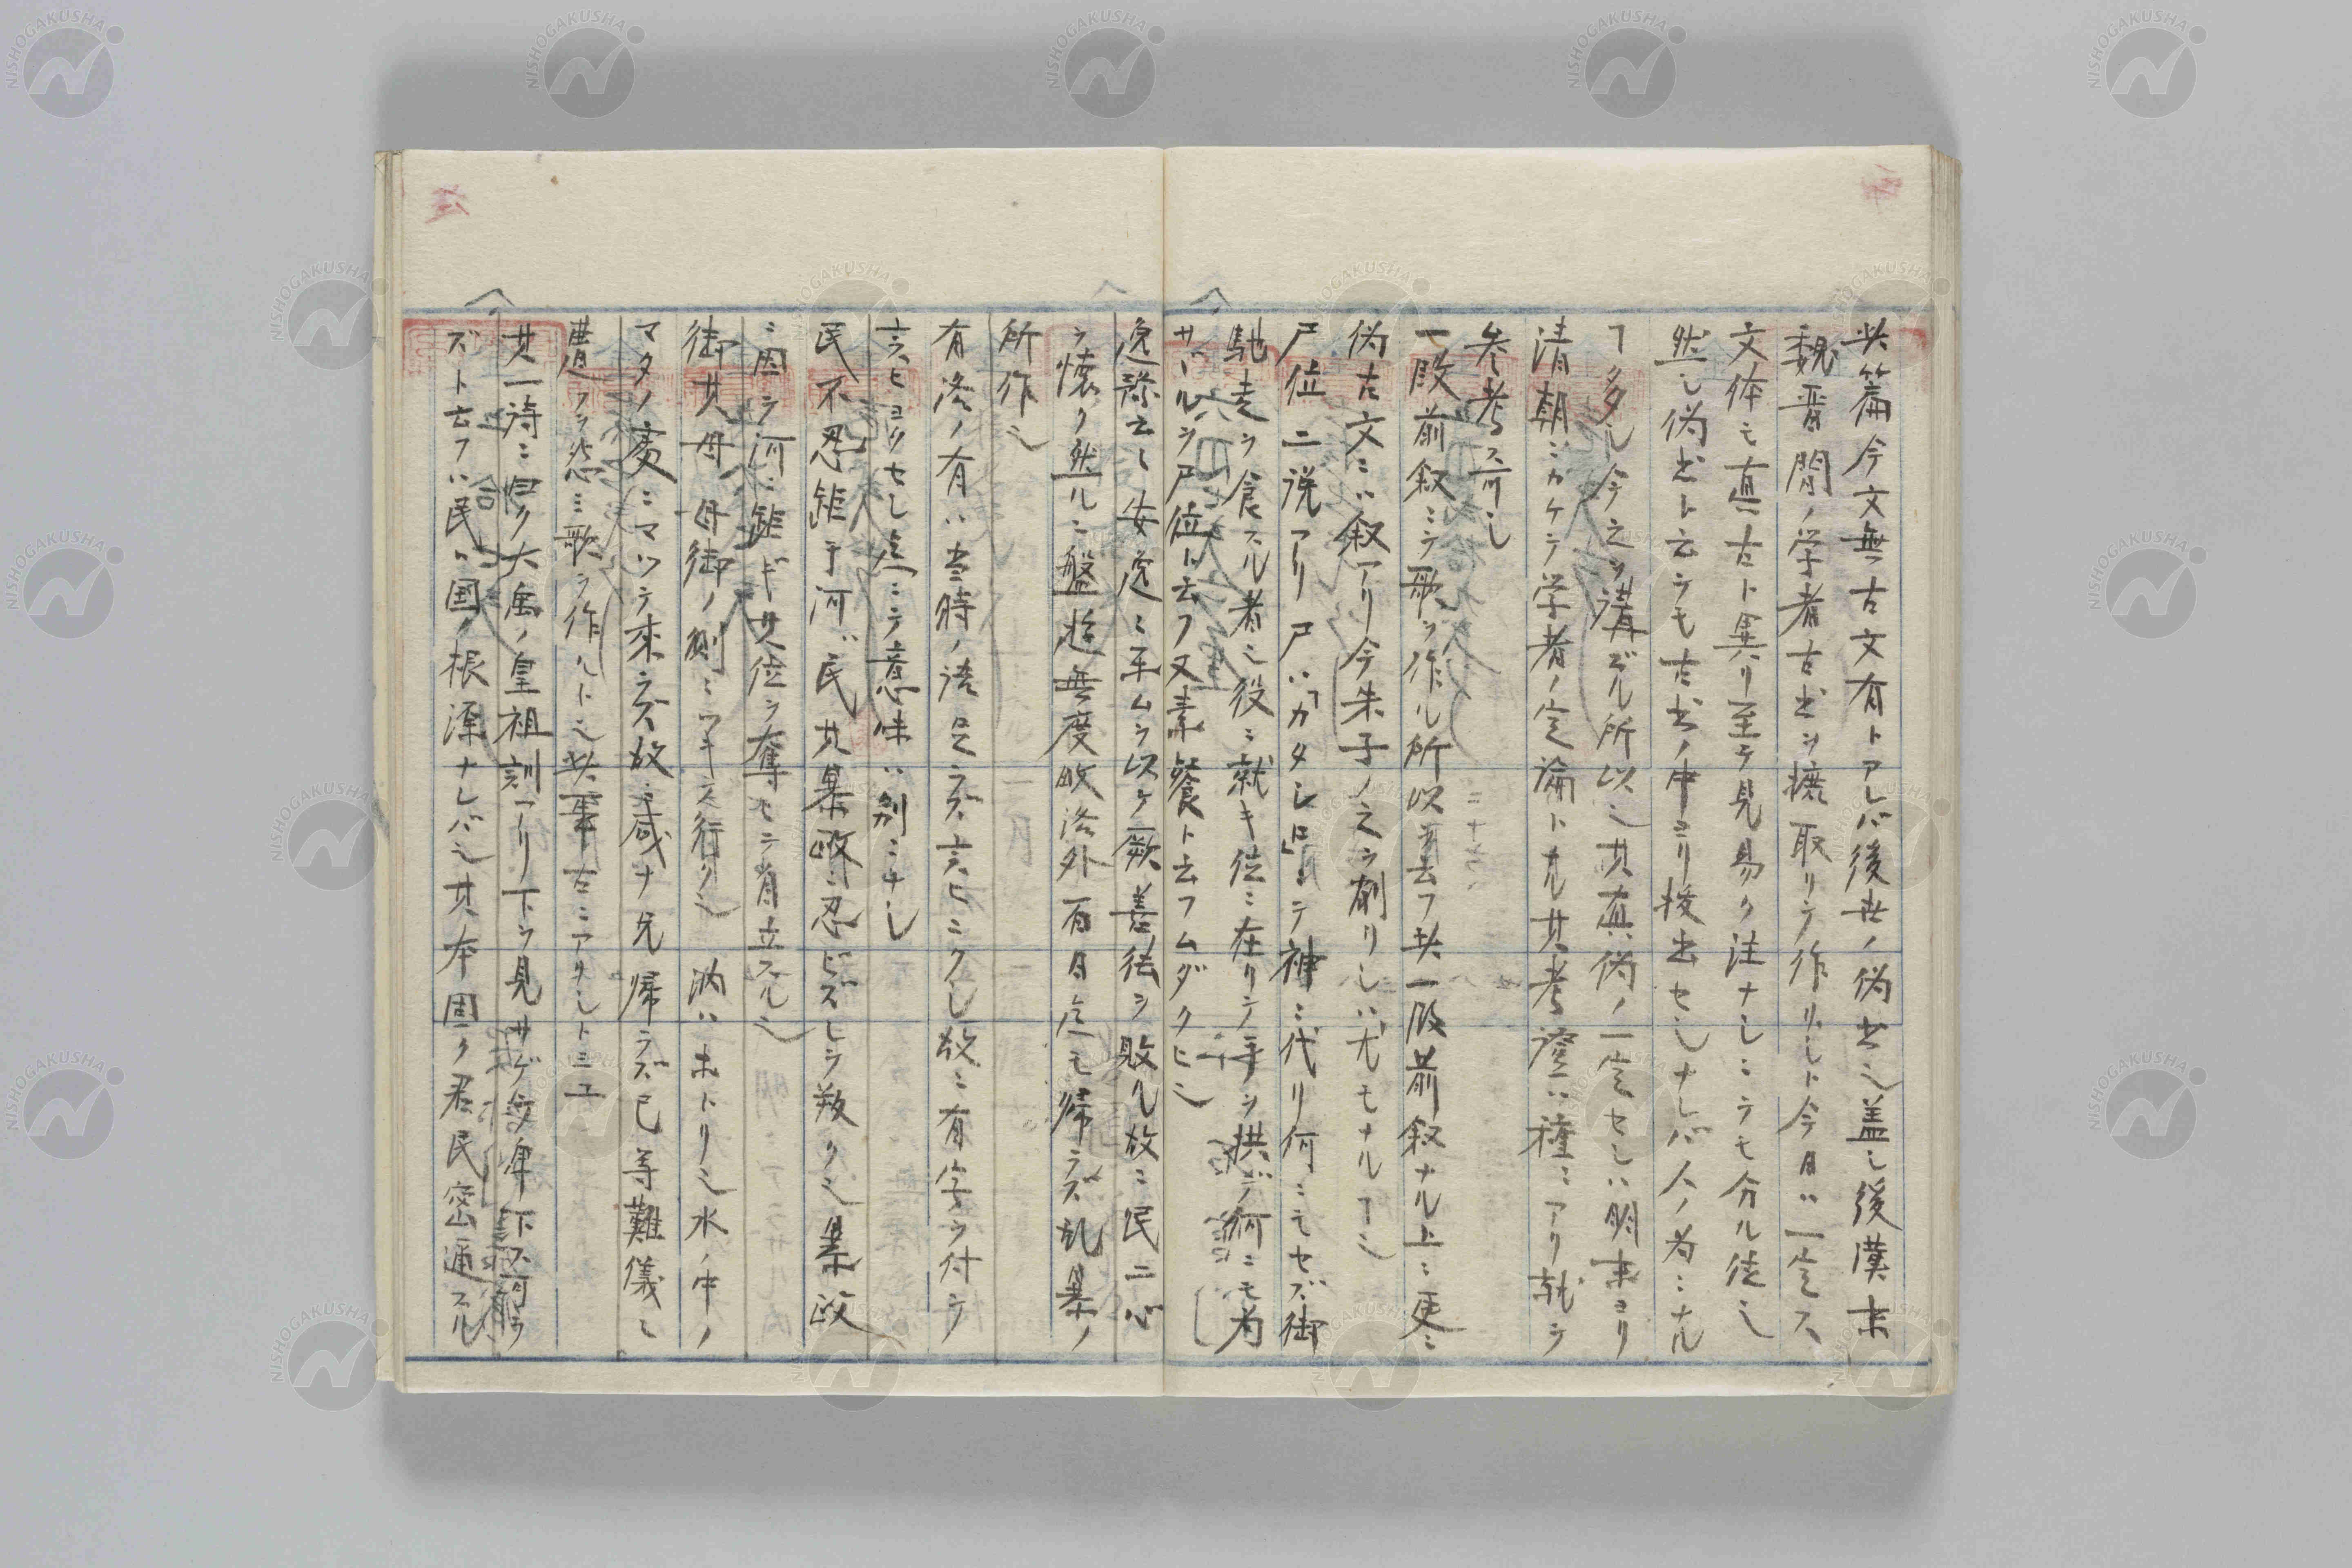 此篇今文無古文有トアレバ後世ノ偽書也盖シ後漢末
魏晋間ノ学者古書ヲ摭取リテ作リシト今日ハ一定ス
文体モ真古ト異リ至テ見易ク注ナシニテモ分ル徒也
然シ偽書ト云ヲモ古書ノ中ヨリ抜出セシナレバ人ノ為ニナル
ヿ多シ今之ヲ講ズル所以也其真偽ノ一定セシハ明末ヨリ
清朝ニカケテ学者ノ定論トス其考證ハ種々アリ就テ
参考ス可シ
一段前叙ミテ歌ヲ作ル所以ヲ云フ其一段前叙ナル上ニ更ニ
偽古文ニハ叙アリ今朱子ノ之ヲ削リシハ尤モナルヿ也
尸位 二説アリ尸ハ「カタシロ」ニテ神ニ代リ何ニモセズ御
馳走ヲ食スル者也役ニ就キ位ニ在リテ手ヲ拱デ何ニモ為
サヾルヲ尸位ト云フ又素餐ト云フムダクヒ也
逸豫云々 安逸ニ至ムヲ以テ厥善徳ヲ敗ル故ニ民二心
ヲ懐ク然ルニ盤遊無度畋洛外百日迄モ帰ラズ乱暴ノ
所作也
有洛ノ有ハ当時ノ語足ラズ言ヒニクシ故ニ有字ヲ付テ
言ヒヨクセシ迄ニテ意味ハ別ニナシ
民不忍距于河ハ民其暴政ニ忍ビズシテ叛ク也暴政
ニ因テ河ニ距ギ其位ヲ奪セテ肯立スル也
御其母 母御ノ側ニツキ之行ク也 汭ハホトリ也水ノ中ノ
マタノ處ニマツテ来ラズ故ニ咸ナ兄帰ラズ已等難儀シ
遭フヲ怨ミ歌ヲ作ルト也此事古ニアリシト三エ
其一 詩ニ曰ク大禹ノ皇祖訓アリ下ヲ見サゲ
ズト云フハ民ハ国ノ根源ナレバ也其本固ク君民密通スル